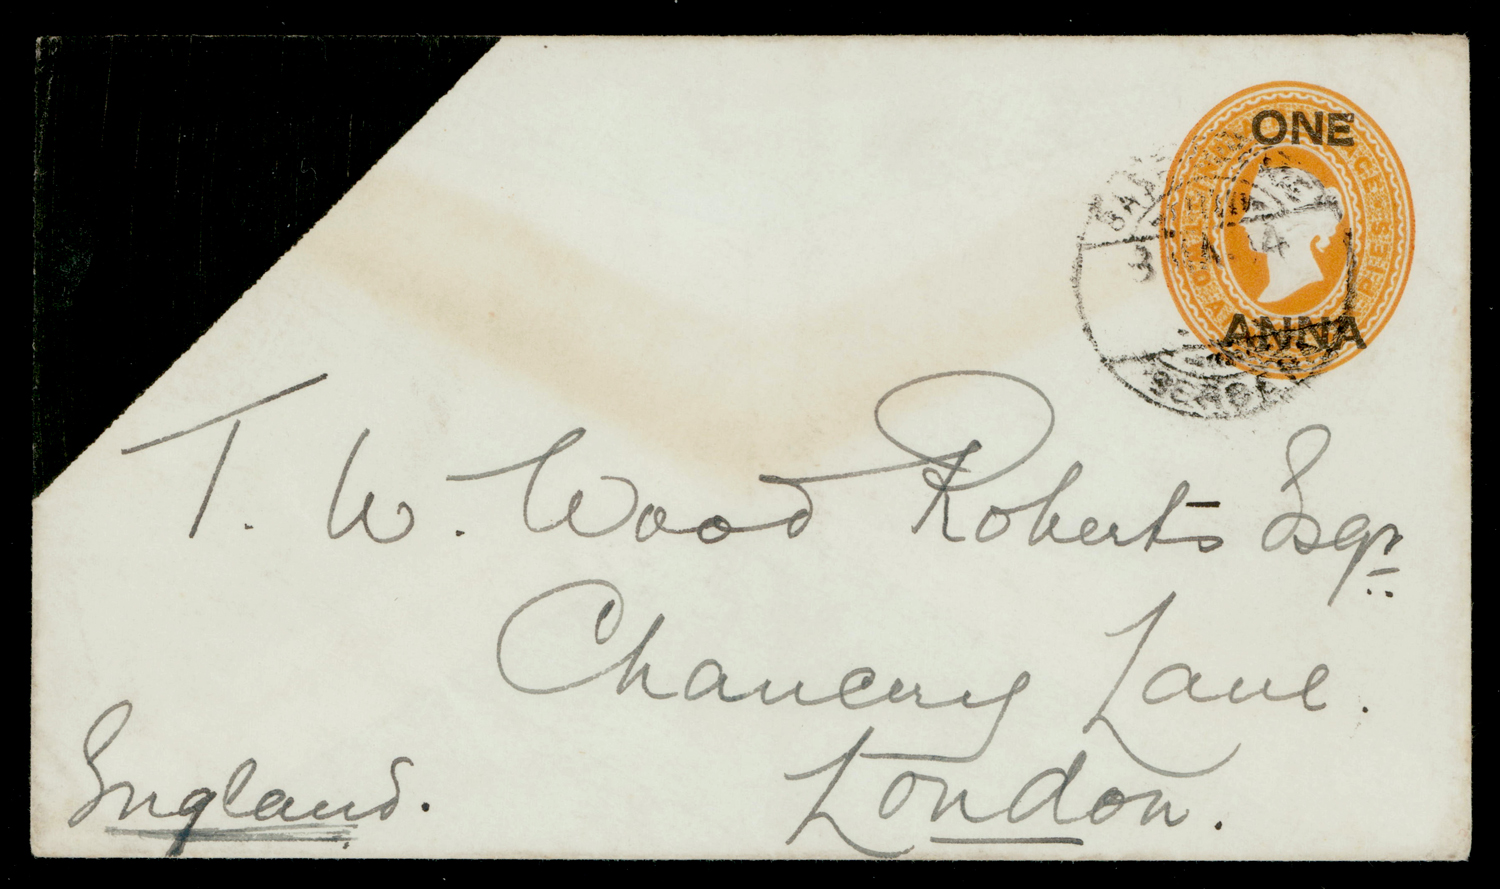 ONE
ANNA
T. W. Wood Roberts Esqr
Chancery Lane.
London.
England.